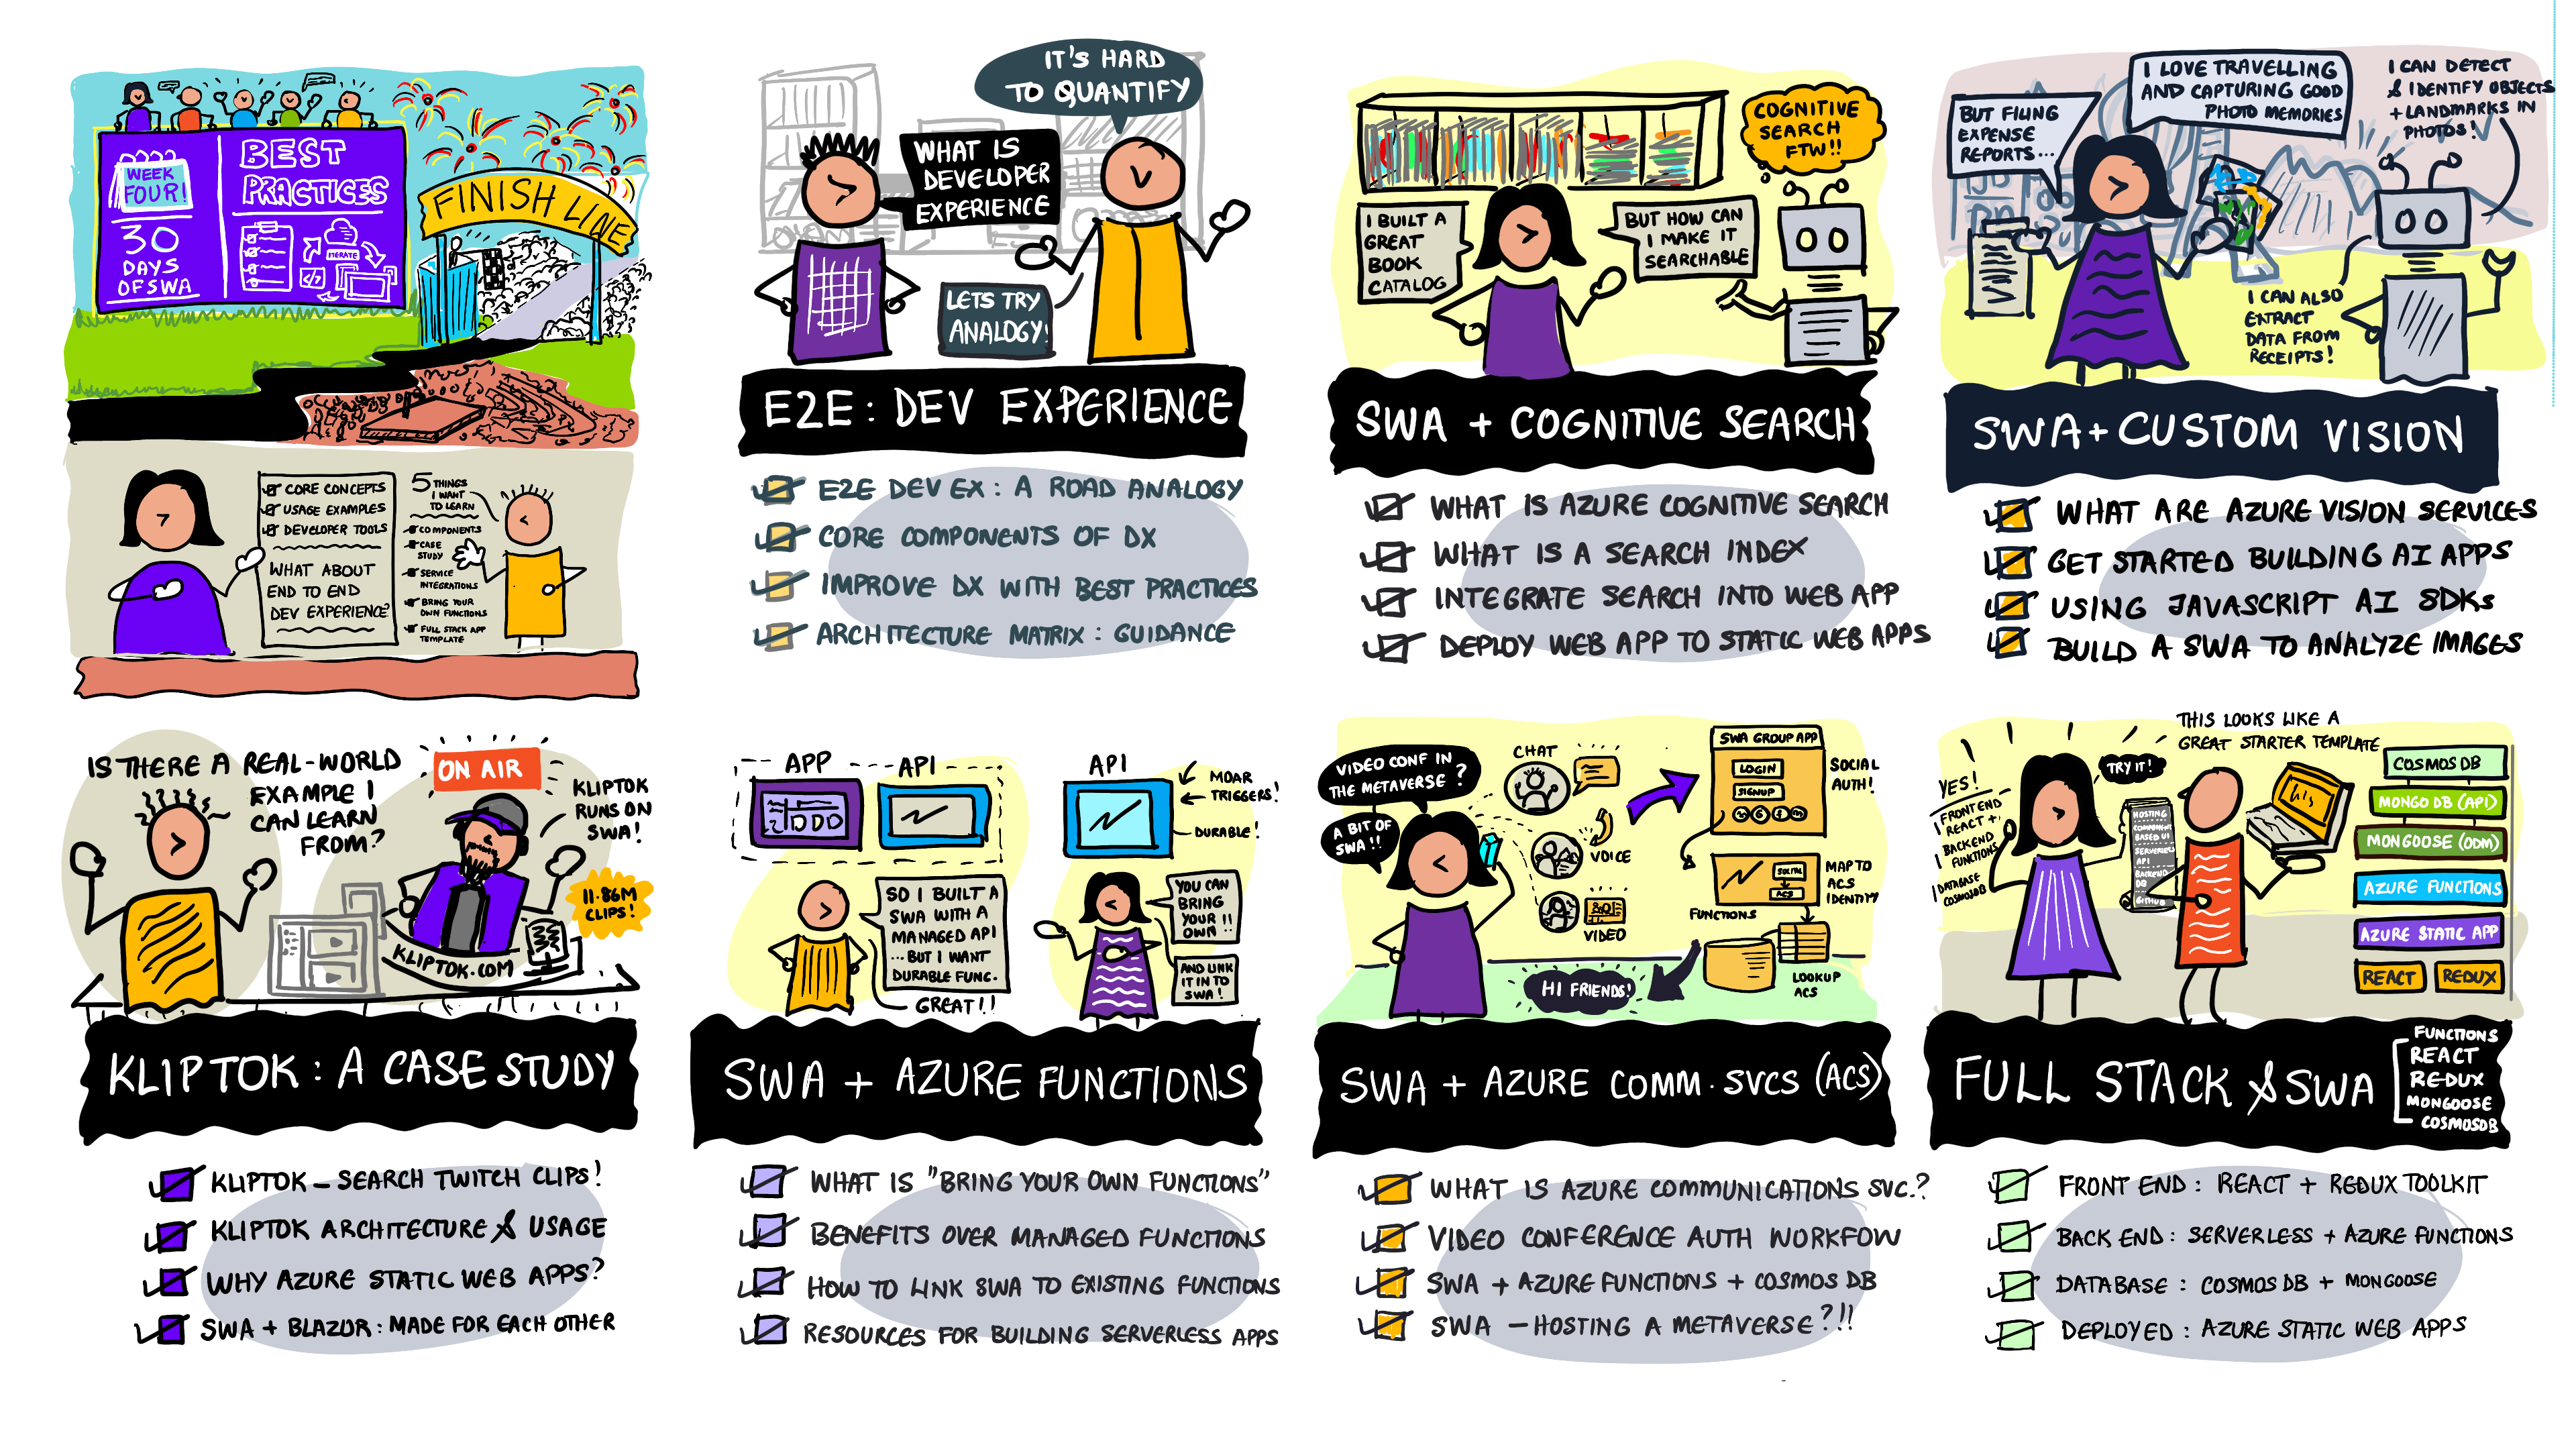 WEEK
FOUR!
30
DAYS
OF SWA
BEST
PRACTICES
ITERATE
FINISH LINE
CORE CONCEPTS
USAGE EXAMPLES
DEVELOPER TOOLS
WHAT ABOUT
END TO END
DEV EXPERIENCE?
5 THINGS
I WANT
TO LEARN
COMPONENTS
CASE
STUDY
SERVICE
INTEGRATIONS
BRING YOUR
OWN FUNCTIONS
FULL STACK APP
TEMPLATE
IT'S HARD
TO QUANTIFY
WHAT IS
DEVELOPER
EXPERIENCE
LETS TRY
ANALOGY!
E2E: DEV EXPERIENCE
E2E DEV EX: A ROAD ANALOGY
CORE COMPONENTS OF DX
IMPROVE DX WITH BEST PRACTICES
ARCHITECTURE MATRIX: GUIDANCE
COGNITIVE
SEARCH
FTW!!
I BUILT A
GREAT
BOOK
CATALOG
BUT HOW CAN
I MAKE IT
SEARCHABLE
SWA + COGNITIVE SEARCH
WHAT IS AZURE COGNITIVE SEARCH
WHAT IS A SEARCH INDEX
INTEGRATE SEARCH INTO WEB APP
DEPLOY WEB APP TO STATIC WEB APPS
I LOVE TRAVELLING
AND CAPTURING GOOD
PHOTO MEMORIES
BUT FILING
EXPENSE
REPORTS...
I CAN DETECT
& IDENTIFY OBJECTS
+ LANDMARKS IN
PHOTOS!
I CAN ALSO
EXTRACT
DATA FROM
RECEIPTS!
SWA + CUSTOM VISION
WHAT ARE AZURE VISION SERVICES
GET STARTED BUILDING AI APPS
USING JAVASCRIPT AI SDKs
BUILD A SWA TO ANALYZE IMAGES
IS THERE A REAL-WORLD
EXAMPLE I
CAN LEARN
FROM?
ON AIR
KLIPTOK
RUNS ON
SWA!
11.86M
CLIPS!
KLIPTOK.COM
KLIPTOK: A CASE STUDY
KLIPTOK - SEARCH TWITCH CLIPS!
KLIPTOK ARCHITECTURE & USAGE
WHY AZURE STATIC WEB APPS?
SWA + BLAZOR: MADE FOR EACH OTHER
APP
API
API
MOAR
TRIGGERS!
DURABLE!
SO I BUILT A
SWA WITH A
MANAGED API
...BUT I WANT
DURABLE FUNC.
GREAT!!
YOU CAN
BRING
YOUR !!
OWN
AND LINK
IT IN TO
SWA!
SWA + AZURE FUNCTIONS
WHAT IS "BRING YOUR OWN FUNCTIONS"
BENEFITS OVER MANAGED FUNCTIONS
HOW TO LINK SWA TO EXISTING FUNCTIONS
RESOURCES FOR BUILDING SERVERLESS APPS
VIDEO CONF IN
THE METAVERSE?
A BIT OF
SWA!!
CHAT
VOICE
VIDEO
SWA GROUP APP
LOGIN
SIGNUP
SOCIAL
AUTH!
SOCIAL
ACS
MAP TO
ACS
IDENTITY
FUNCTIONS
LOOKUP
ACS
HI FRIENDS!
SWA + AZURE COMM. SVCS (ACS)
WHAT IS AZURE COMMUNICATIONS SVC.?
VIDEO CONFERENCE AUTH WORKFOW
SWA + AZURE FUNCTIONS + COSMOS DB
SWA - HOSTING A METAVERSE?!!
THIS LOOKS LIKE A
GREAT STARTER TEMPLATE
YES!
1 FRONT END
REACT +
1 BACKEND
FUNCTIONS
1 DATABASE
COSMOSDB
TRY IT!
HOSTING
COMPONENT
BASED UI
SERVERLESS
API
BACKEND
DB
GITHUB
COSMOS DB
MONGO DB (API)
MONGOOSE (ODM)
AZURE FUNCTIONS
AZURE STATIC APP
REACT
REDUX
FULL STACK & SWA
FUNCTIONS
REACT
REDUX
MONGOOSE
COSMOSDB
FRONT END: REACT + REDUX TOOLKIT
BACK END: SERVERLESS + AZURE FUNCTIONS
DATABASE: COSMOS DB + MONGOOSE
DEPLOYED: AZURE STATIC WEB APPS